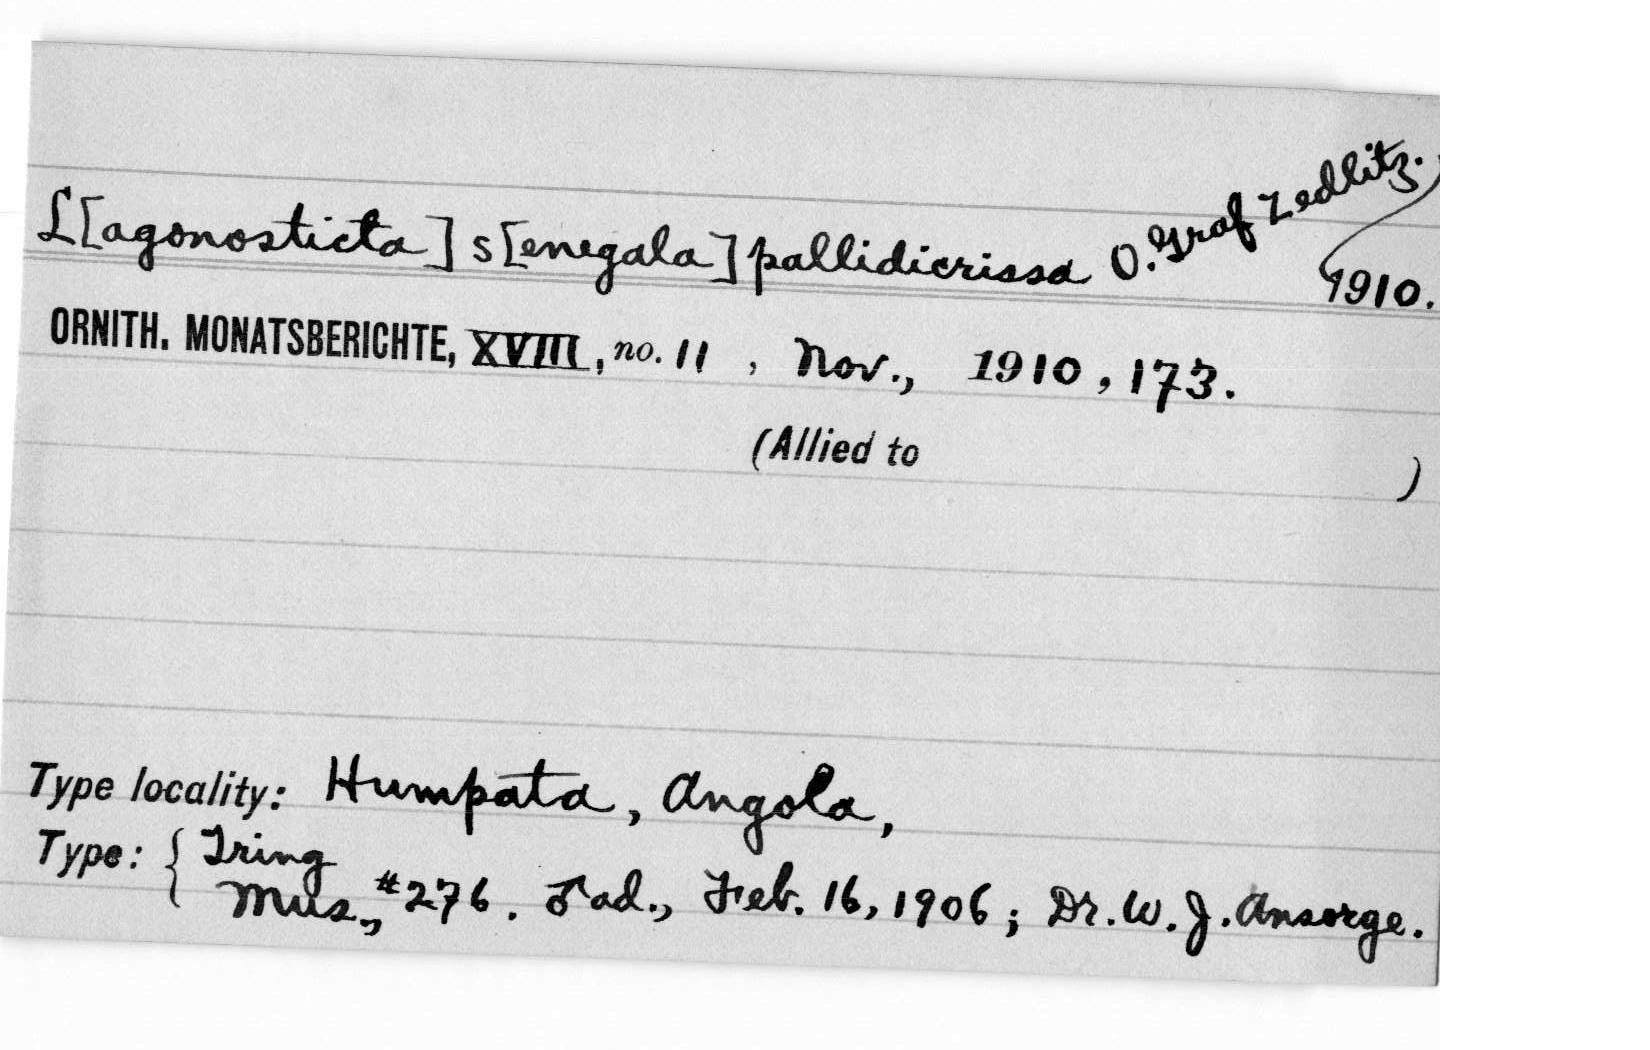 L[agonosticta] s[enegala] pallidicrissa O. Graf Zedlitz.
1910.
ORNITH. MONATSBERICHTE, XVIII, no. 11 , Nov., 1910, 173.
(Allied to )
Type locality: Humpata, Angola,
Type: { Tring
Mus., #276. ♂ ad., Feb. 16, 1906; Dr. W. J. Ansorge.